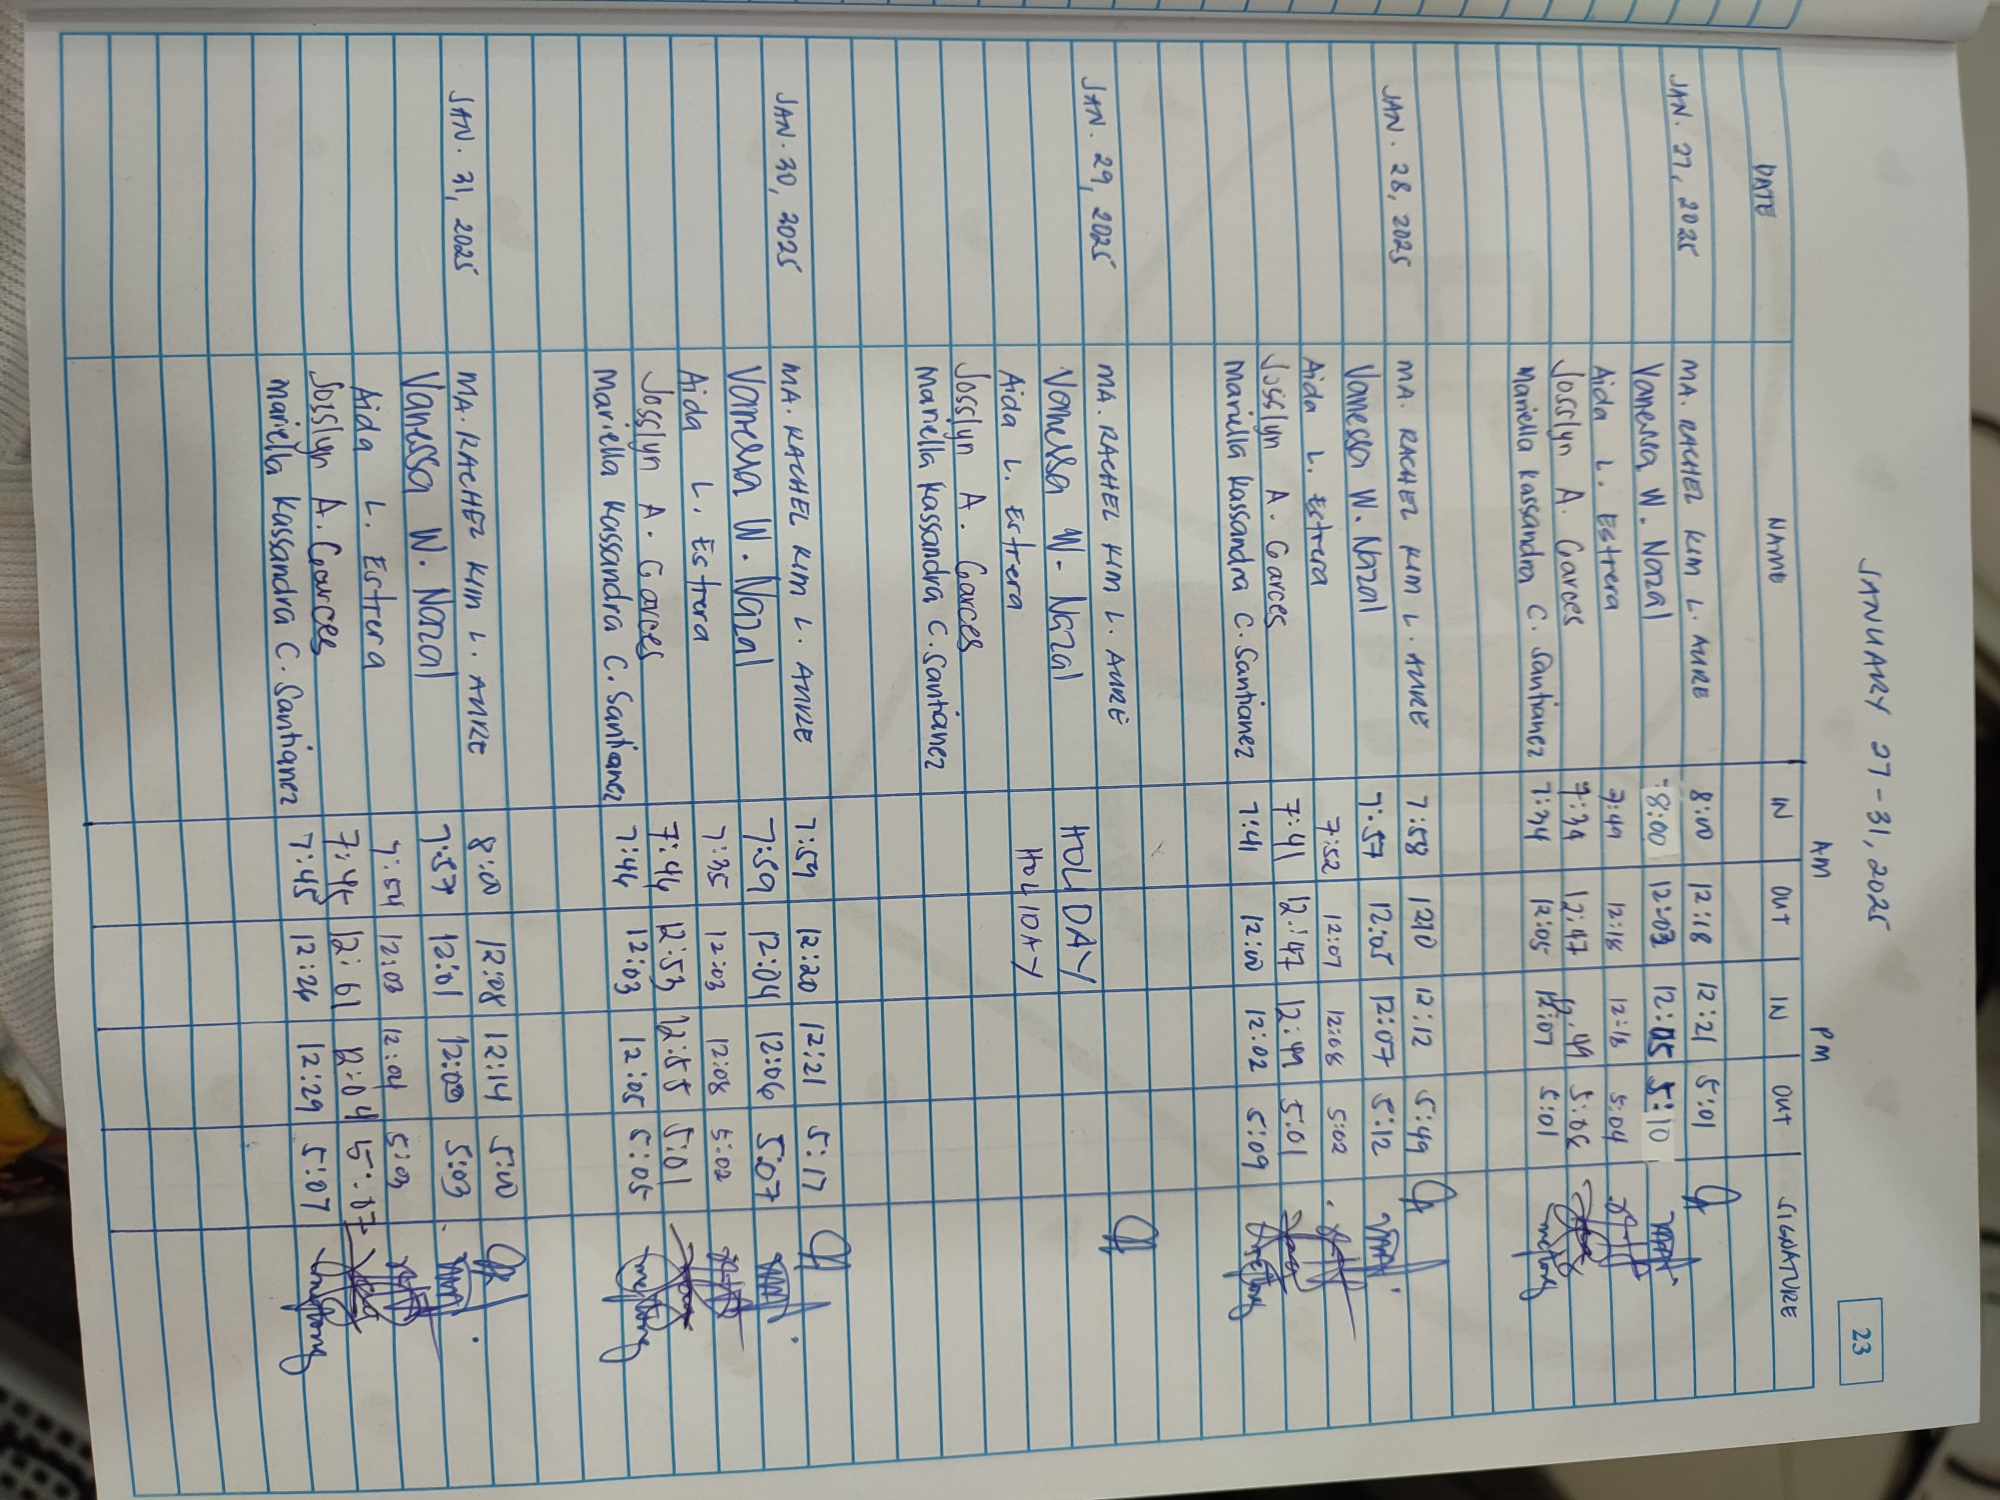 23
JANUARY 27-31, 2025
AM PM
DATE NAME IN OUT IN OUT SIGNATURE
JAN. 27, 2025 MA. RACHEL KIM L. AURE 8:00 12:18 12:21 5:01
Vanessa W. Nazal 8:00 12:03 12:05 5:10
Aida L. Estrera 7:49 12:18 12:18 5:04
Josslyn A. Garces 7:34 12:47 12:49
Mariella Kassandra C. Santianez 7:34 12:05 12:07 5:01
JAN. 28, 2025 MA. RACHEL KIM L. AURE 7:58 1210 12:12 5:49
Vanessa W. Nazal 7:57 12:05 12:07 5:12
Aida L. Estrera 7:52 12:07 12:08 5:02
Josslyn A. Garces 7:41 12:47 12:49 5:01
Mariella Kassandra C. Santianez 7:41 12:00 12:02 5:09
JAN. 29, 2025 MA. RACHEL KIM L. AURE
Vanessa W. Nazal HOLIDAY
Aida L. Estrera HOLIDAY
Josslyn A. Garces
Mariella Kassandra C. Santianez
JAN. 30, 2025 MA. RACHEL KIM L. AURE 7:59 12:20 12:21 5:17
Vanessa W. Nazal 7:59 12:04 12:06 5:07
Aida L. Estrera 7:35 12:03 12:08 5:02
Josslyn A. Garces 7:44 12:53 12:55 5:01
Mariella Kassandra C. Santianez 7:44 12:03 12:05 5:05
JAN. 31, 2025 MA. RACHEL KIM L. AURE 8:00 12:08 12:14 5:00
Vanessa W. Nazal 7:57 12:01 12:03 5:03
Aida L. Estrera 7:54 12:03 12:04 5:03
Josslyn A. Garces 7:45 12:61 12:04 5:07
Mariella Kassandra C. Santianez 7:45 12:26 12:29 5:07